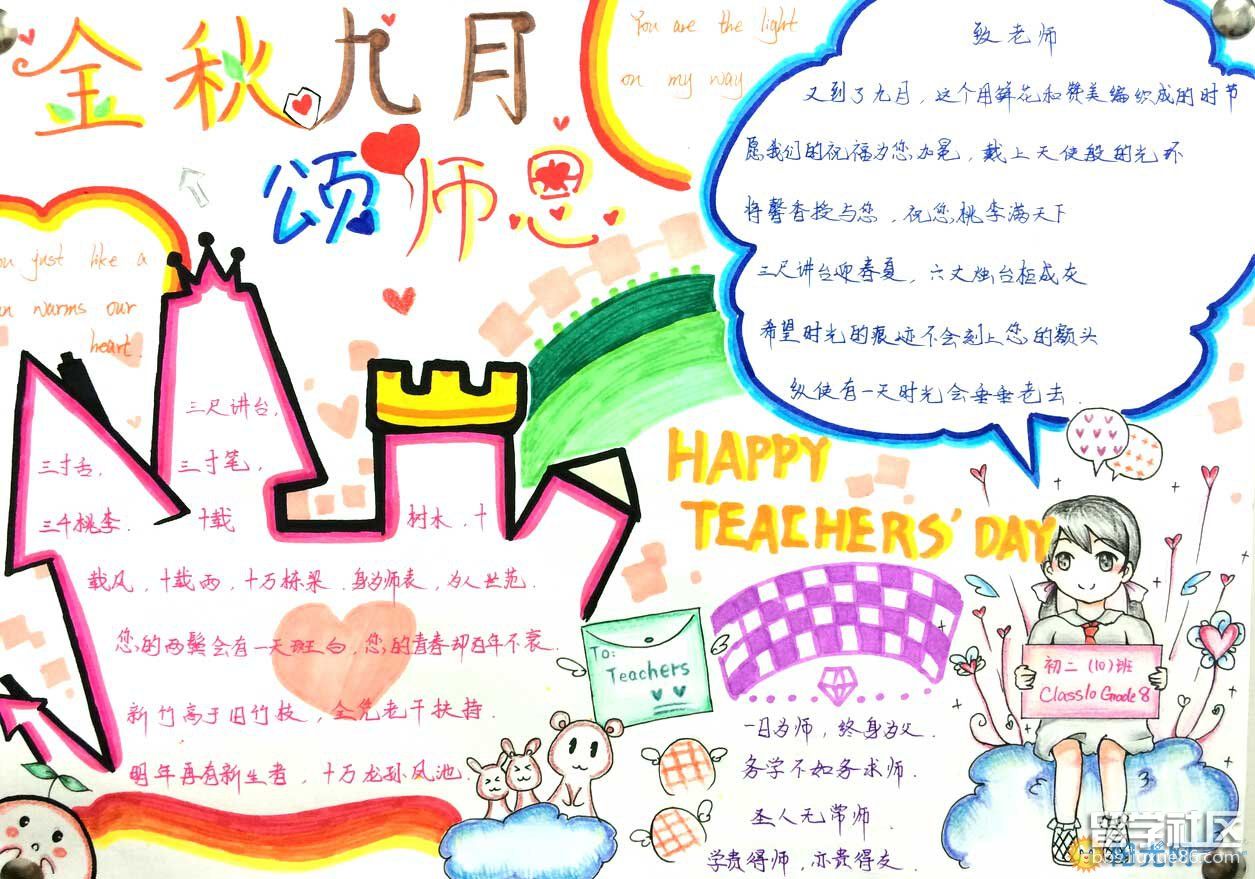 金秋九月
颂师恩
You are the light
on my way
致老师
又到了九月，这个用鲜花和赞美编织成的时节
愿我们的祝福为您加冕，戴上天使般的光环
将馨香授与您，祝您桃李满天下
三尺讲台迎春夏，六丈烛台柜成灰
希望时光的痕迹不会刻上您的额头
纵使有一天时光会垂垂老去.
ou just like a
n warms our
heart.
三尺讲台，
三寸舌，
三寸笔，
三千桃李.
十载
树木，十
载风，十载雨，十万栋梁.身为师表，为人世范.
您的两鬓会有一天斑白，您的青春却百年不衰.
新竹高于旧竹枝，全凭老干扶持.
明年再有新生者，十万龙孙凤池.
HAPPY
TEACHERS' DAY
To:
Teachers
初二（10）班
Class10 Grade 8
一日为师，终身为父.
务学不如务求师.
圣人无常师.
学贵得师，亦贵得友.
留学社区
bbs.liuxue86.com